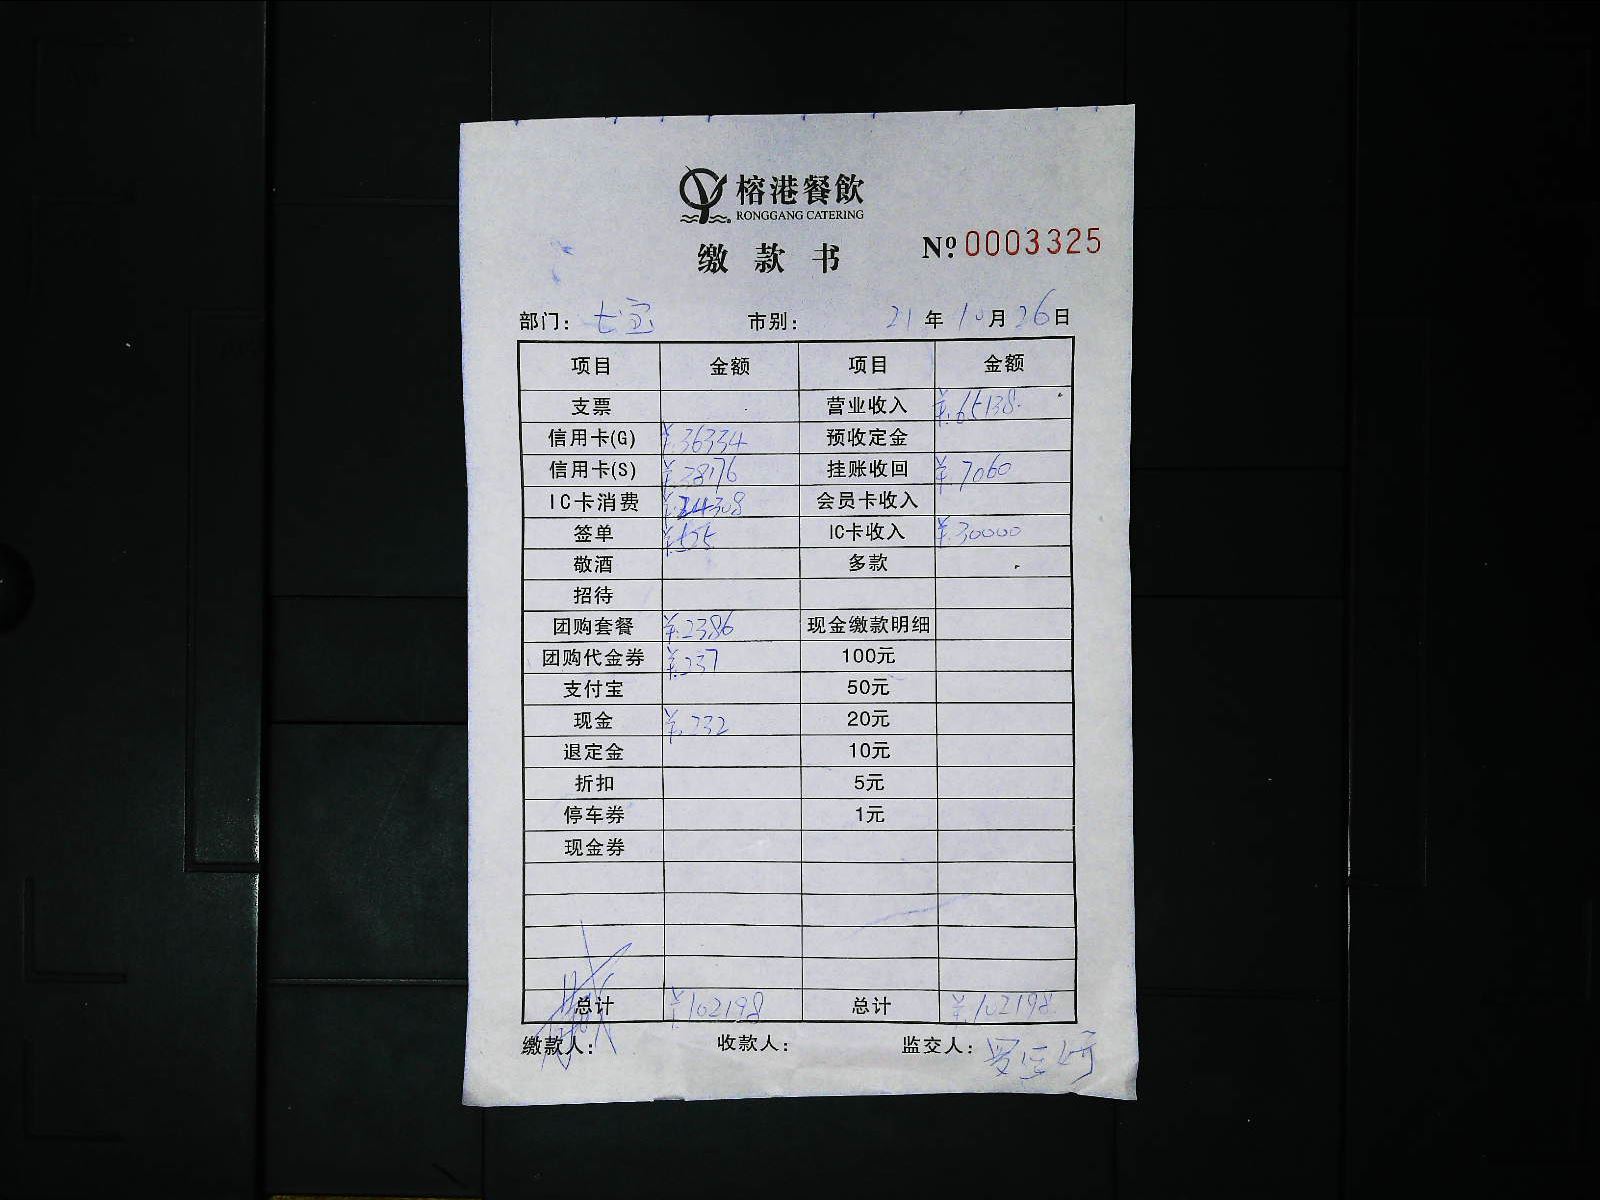 榕港餐飲
RONGGANG CATERING
缴款书
Nº 0003325
部门: 七宝 市别: 21年10月26日
项目 金额 项目 金额
支票 营业收入 ¥.65138.
信用卡(G) ¥.36334 预收定金
信用卡(S) ¥.38176 挂账收回 ¥.7060
IC卡消费 ¥.24308 会员卡收入
签单 ¥.525 IC卡收入 ¥.30000
敬酒 多款
招待
团购套餐 ¥.2386 现金缴款明细
团购代金券 ¥.237 100元
支付宝 50元
现金 ¥.232 20元
退定金 10元
折扣 5元
停车券 1元
现金券
总计 ¥.102198 总计 ¥.102198.
缴款人: 收款人: 监交人: